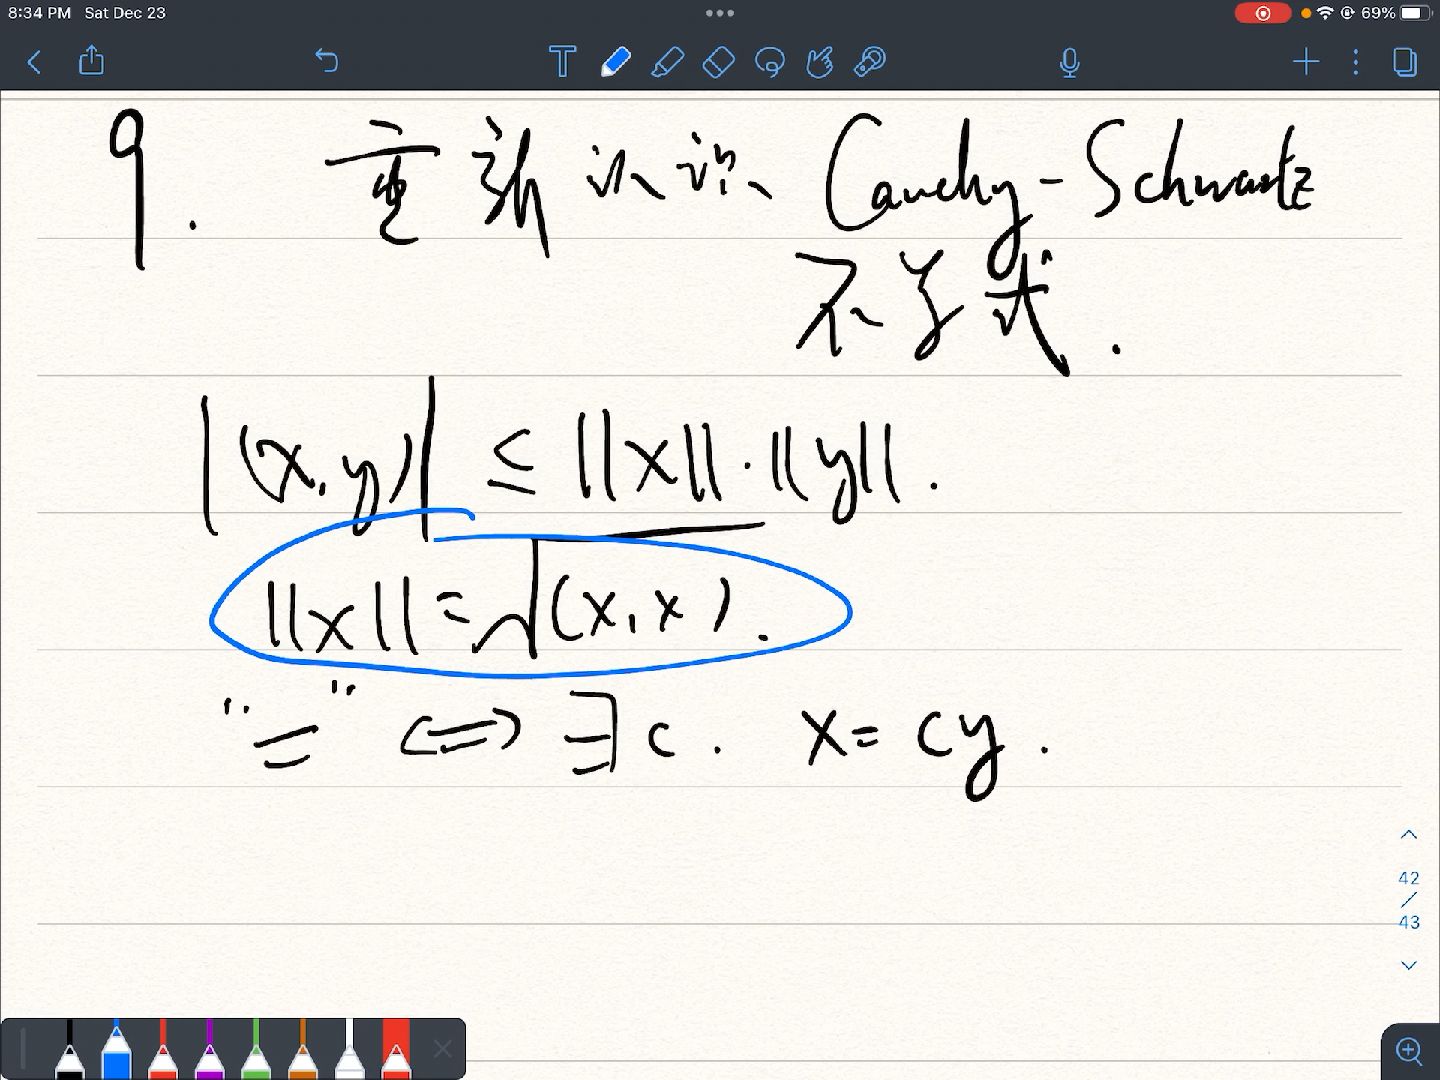 8:34 PM Sat Dec 23
69%
9. 重新认识 Cauchy-Schwartz
不等式.
|(x,y)| ≤ ||x||·||y||.
||x|| = √(x,x).
"=" ⟺ ∃c. x=cy.
42
/
43